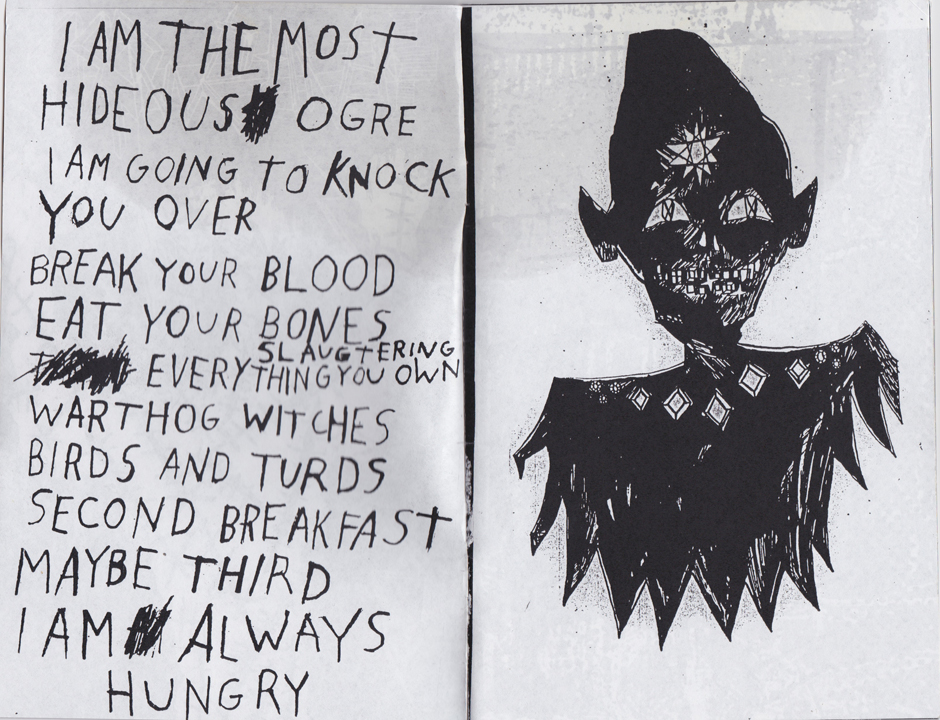 I AM THE MOST
HIDEOUS OGRE
I AM GOING TO KNOCK
YOU OVER
BREAK YOUR BLOOD
EAT YOUR BONES
SLAUGTERING
EVERYTHING YOU OWN
WARTHOG WITCHES
BIRDS AND TURDS
SECOND BREAKFAST
MAYBE THIRD
I AM ALWAYS
HUNGRY